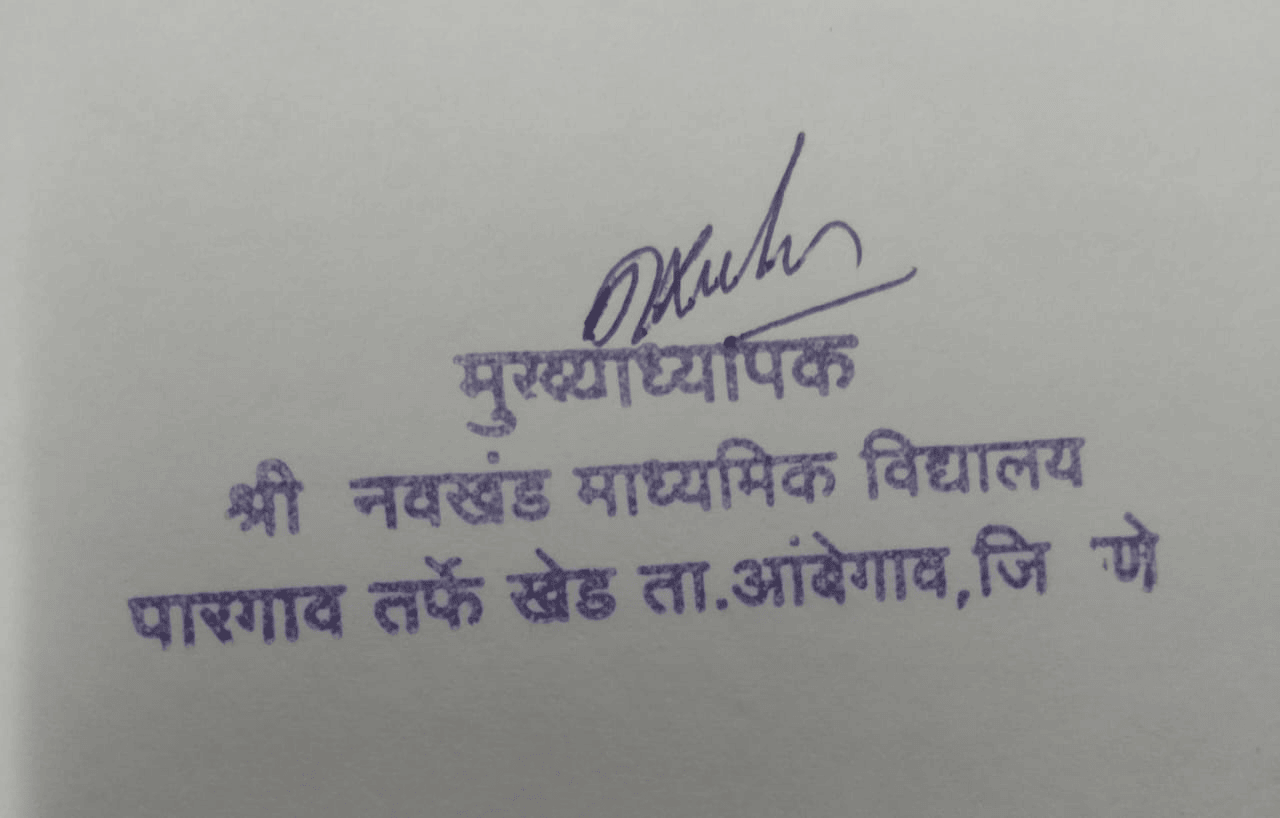 मुख्याध्यापक
श्री नवखंड माध्यमिक विद्यालय
पारगाव तर्फे खेड ता.आंबेगाव,जि णे